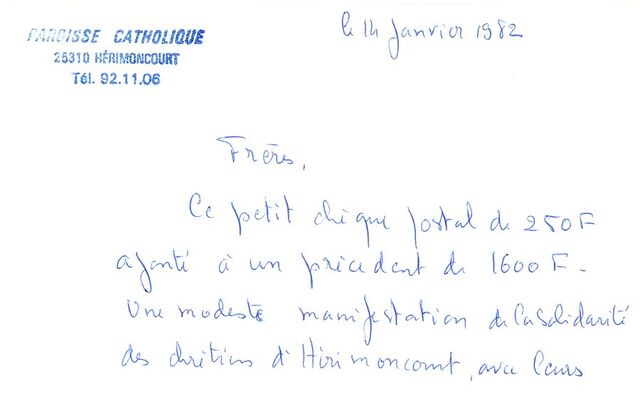 PAROISSE CATHOLIQUE
25310 HÉRIMONCOURT
Tél. 92.11.06
le 14 Janvier 1982
Frères,
Ce petit chèque postal de 250F
ajouté à un précédent de 1600 F.
Une modeste manifestation de la Solidarité
des chrétiens d'Hérimoncourt, avec leurs